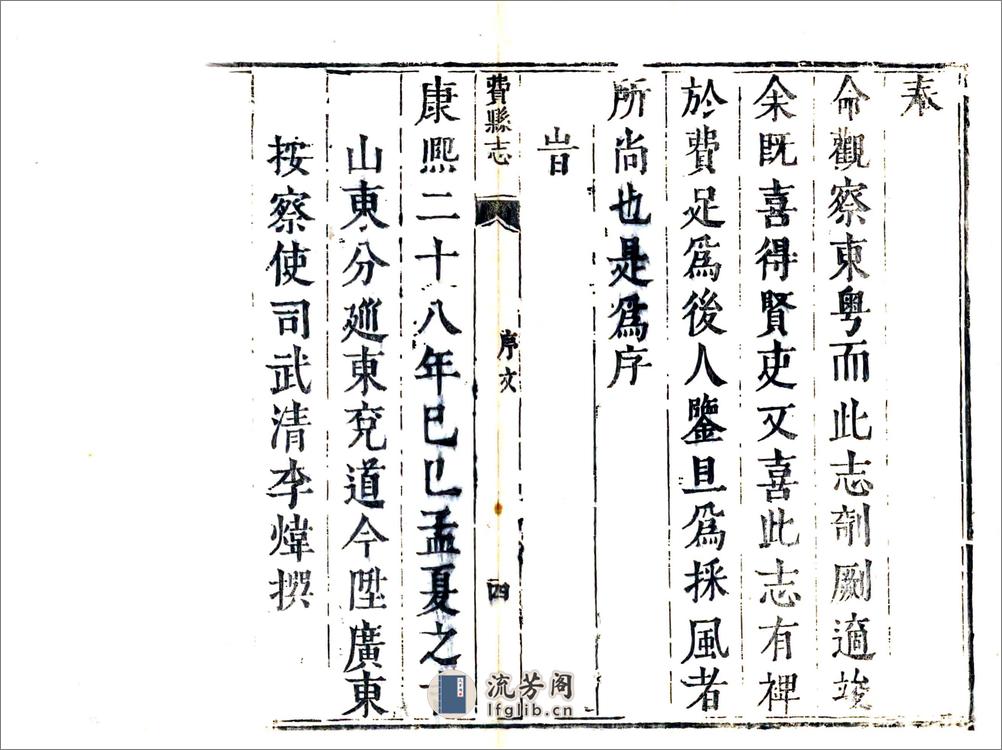 奉
命觀察東粤而此志剞劂適竣
余既喜得賢吏又喜此志有裨
於費足爲後人鑒且爲採風者
所尚也是爲序
旹
費縣志
序文
四
康熙二十八年己巳孟夏之
山東分廵東兗道今陞廣東
按察使司武清李煒撰
流芳阁
lfglib.cn